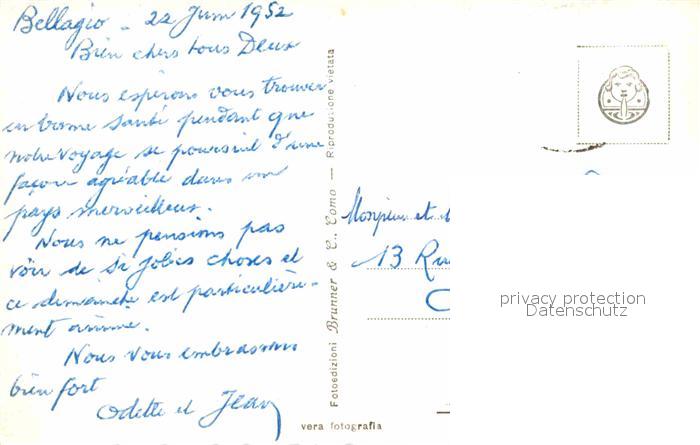 Bellagio - 22 Juin 1952
Bien chers tous Deux
Nous espérons vous trouver
en bonne santé pendant que
notre voyage se poursuit d'une
façon agréable dans un
pays merveilleux.
Nous ne pensions pas
voir de si jolies choses et
ce dimanche est particulière-
ment animé.
Nous vous embrassons
bien fort
Odette et Jean
Fotoedizioni Brunner & C., Como — Riproduzione vietata
vera fotografia
Monsieur et
13 Rue
privacy protection
Datenschutz